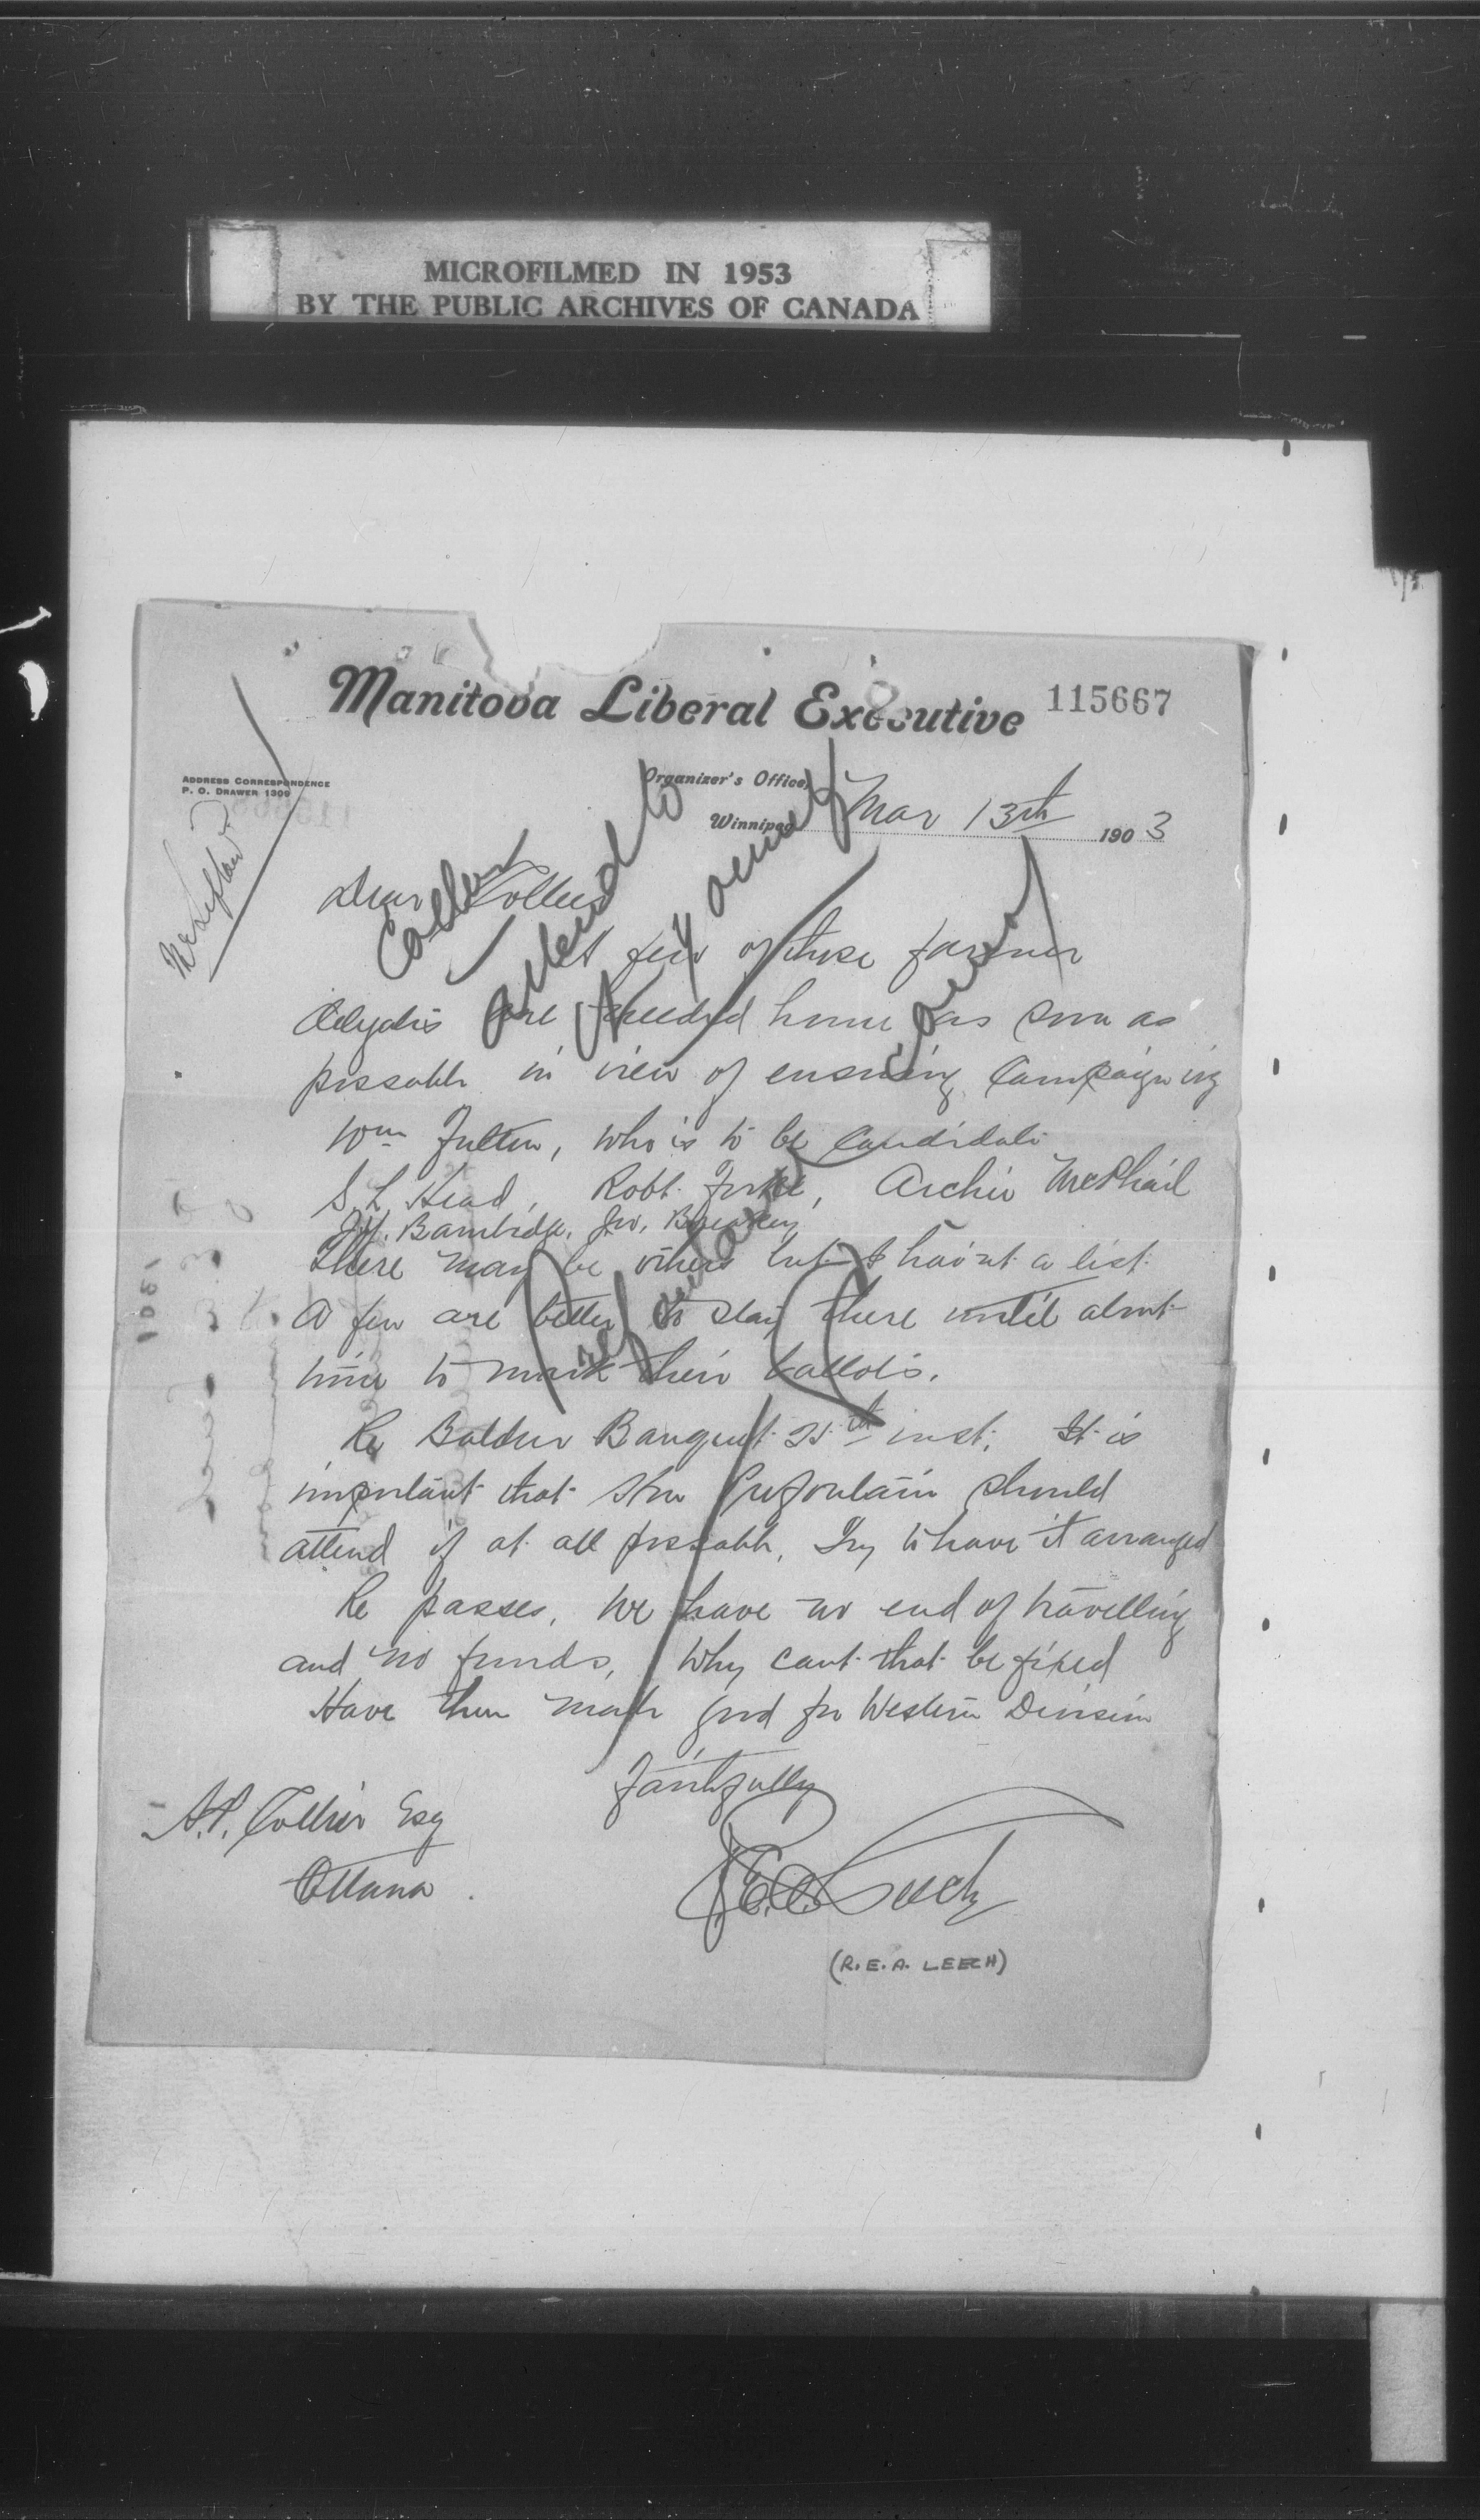 MICROFILMED IN 1953
BY THE PUBLIC ARCHIVES OF CANADA
Manitoba Liberal Executive
115667
ADDRESS CORRESPONDENCE
P. O. DRAWER 1309
Organizer's Office,
Winnipeg Mar 13th 1903
Dear Collier
A few of these farmer
delegates are needed home as soon as
possable in view of ensuing Campaigning
Wm Fulton, who is to be Candidate
S. L. Head, Robt. Forke, Archie McPhail
Bambridge, Jno,
There may be others but I hav'nt a list
A few are better to stay there until about
time to mark their ballots.
Re Baldur Banquet 25th inst. It is
important that Hon Prefontain should
attend if at all possable, Try to have it arranged
Re passes, We have no end of travelling
and no funds, Why cant that be fixed
Have them made good for Western Division
Faithfully
A.P. Collier Esq
Ottawa
R.E.A. Leech
(R.E.A. LEECH)
Collier
attend to